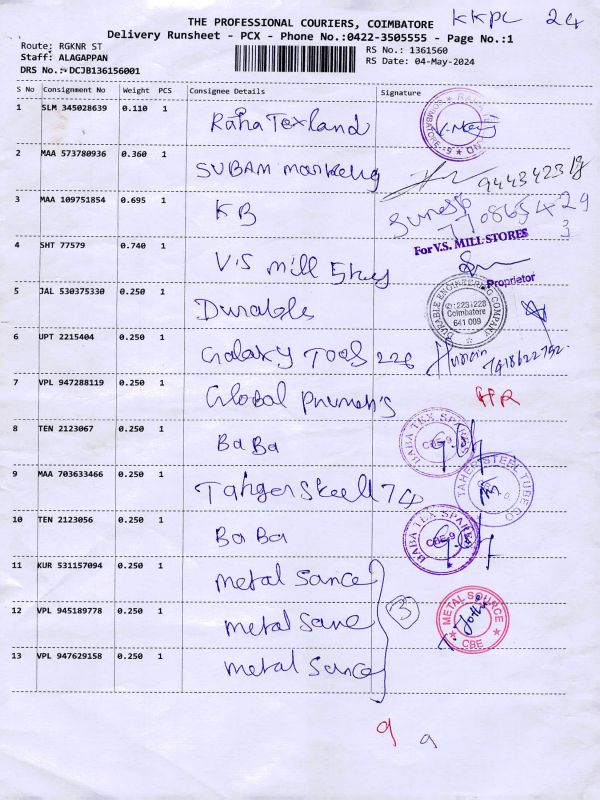 THE PROFESSIONAL COURIERS, COIMBATORE KKPC 24
Delivery Runsheet - PCX - Phone No.:0422-3505555 - Page No.:1
Route: RGKNR ST RS No.: 1361560
Staff: ALAGAPPAN RS Date: 04-May-2024
DRS No.:- DCJB136156001
S No Consignment No Weight PCS Consignee Details Signature
1 SLM 345028639 0.110 1 Raha Texland
2 MAA 573780936 0.360 1 SUBAM marketing
3 MAA 109751854 0.695 1 KB Suresh
For V.S. MILL STORES
4 SHT 77579 0.740 1 V.S mill
Proprietor
5 JAL 530375330 0.250 1 Durable
DURABLE ENGINEERING COMPANY
Coimbatore
641 009
6 UPT 2215404 0.250 1 Galaxy Tools 226
7 VPL 947288119 0.250 1 Global HR
8 TEN 2123067 0.250 1 BaBa BABA TEX SPARES CBE-9
9 MAA 703633466 0.250 1 74 TAHER STEEL TUBE CO
10 TEN 2123056 0.250 1 BaBa BABA TEX SPARES CBE-9
11 KUR 531157094 0.250 1 metal Sance
12 VPL 945189778 0.250 1 metal Sane 3 METAL SOURCE CBE T. Jothi
13 VPL 947629158 0.250 1 metal Sance
9 9